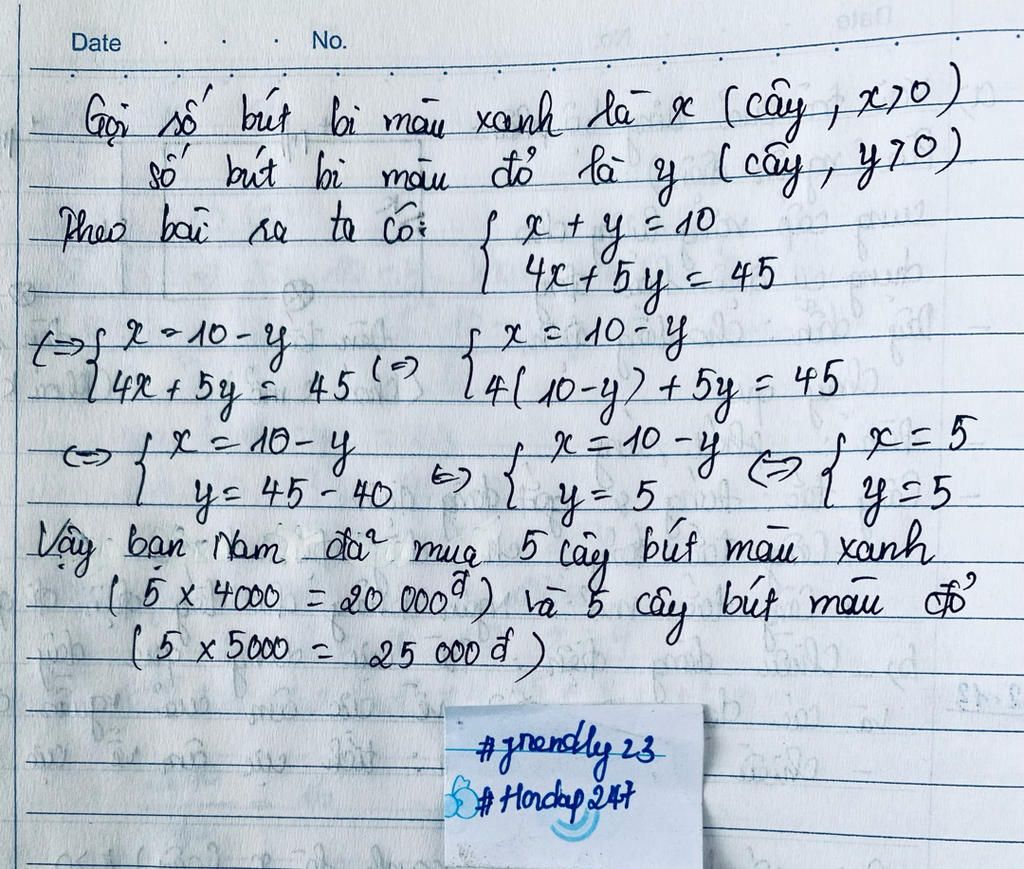 Date No.
Gọi số bút bi màu xanh là x (cây, x>0)
số bút bi màu đỏ là y (cây, y>0)
Theo bài ra ta có: { x + y = 10
4x + 5y = 45
<=> { x = 10 - y <=> { x = 10 - y
4x + 5y = 45 4(10-y) + 5y = 45
<=> { x = 10 - y <=> { x = 10 - y <=> { x = 5
y = 45 - 40 y = 5 y = 5
Vậy bạn Nam đã mua 5 cây bút màu xanh
(5 x 4000 = 20 000đ) và 5 cây bút màu đỏ
(5 x 5000 = 25 000đ)
#friendly23
#Hoidap247